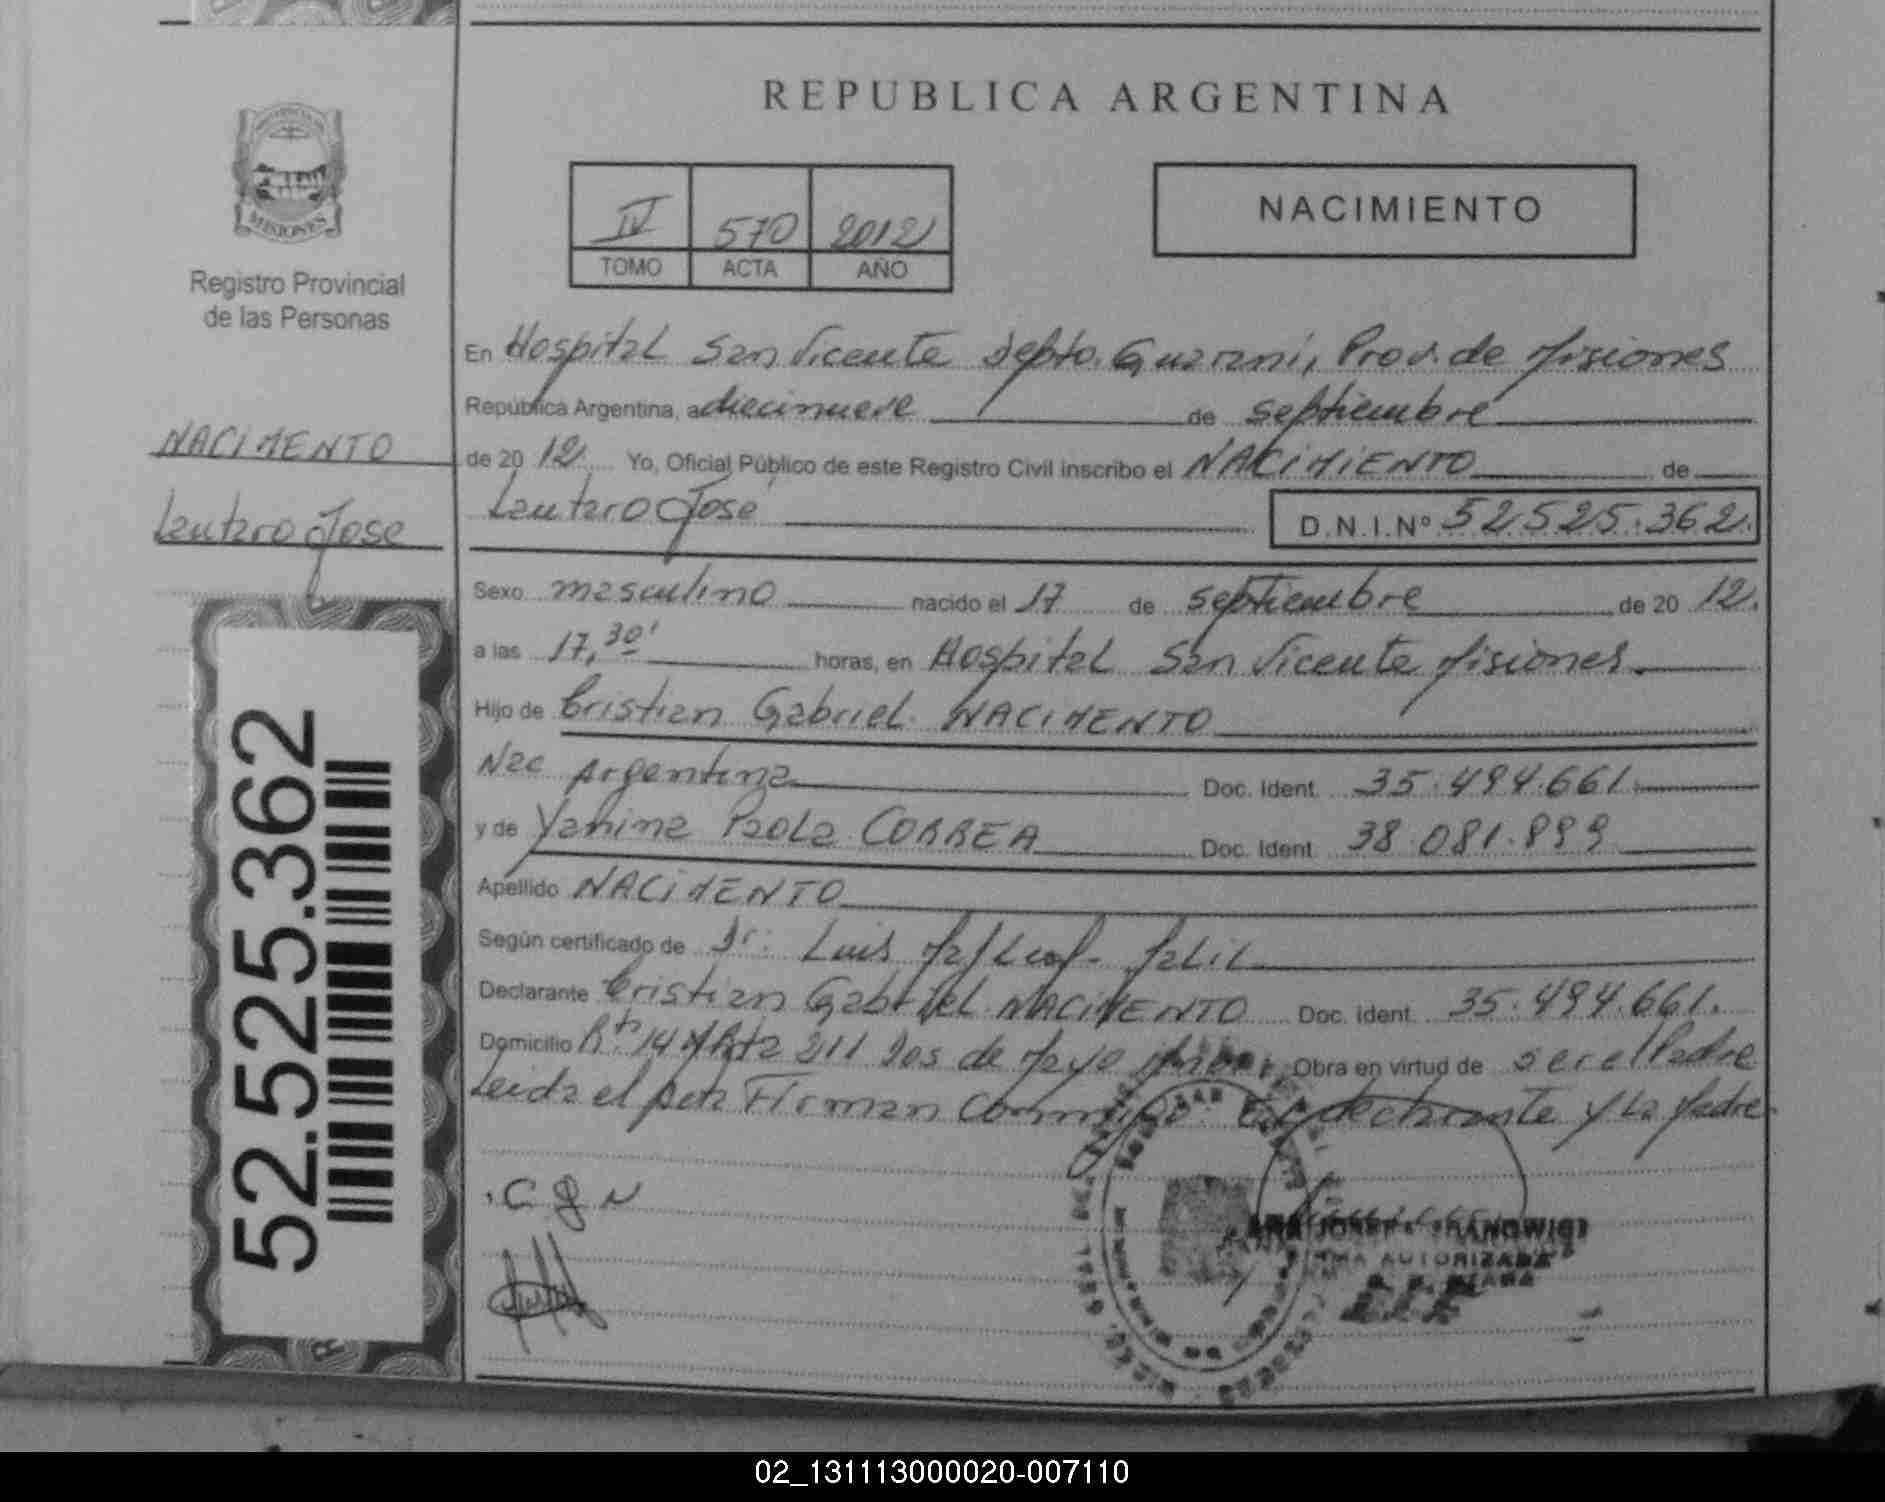 REPUBLICA ARGENTINA
MISIONES
Registro Provincial
de las Personas
NACIMENTO
Lautaro Jose
52.525.362
IV 570 2012
TOMO ACTA AÑO
NACIMIENTO
En Hospital San Vicente Depto. Guarani, Prov. de Misiones
República Argentina, a diecinueve de septiembre
de 20 12 Yo, Oficial Público de este Registro Civil inscribo el NACIMIENTO de
Lautaro José D.N.I.Nº 52.525.362.
Sexo masculino nacido el 17 de septiembre de 20 12.
a las 17,30' horas, en Hospital San Vicente Misiones.
Hijo de Cristian Gabriel NACIMENTO
Nac Argentina Doc. Ident. 35.494.661.
y de Yanina Paola CORREA Doc. Ident 38.081.899
Apellido NACIMENTO
Según certificado de Dr: Luis
Declarante Cristian Gabriel NACIMENTO Doc. Ident. 35.494.661.
Domicilio Rta 14 211 Dos de Mayo Obra en virtud de ser el Padre
Leida el acta Firman Conmigo El declarante y La Madre.
C G N
AUTORIZADA
02_131113000020-007110